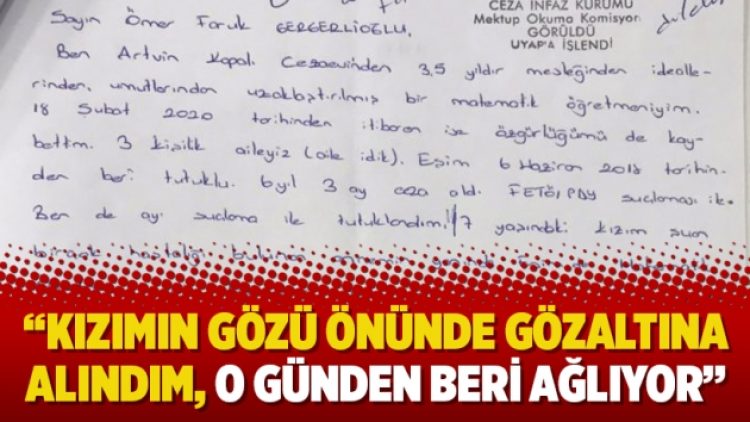 CEZA İNFAZ KURUMU
Mektup Okuma Komisyon
GÖRÜLDÜ
UYAP'A İŞLENDİ
Sayın Ömer Faruk GERGERLİOĞLU,
Ben Artvin Kapalı Cezaevinden 3,5 yıldır mesleğinden idealle-
rinden, umutlarından uzaklaştırılmış bir matematik öğretmeniyim.
18 Şubat 2020 tarihinden itibaren ise özgürlüğümü de kay-
bettim. 3 kişilik aileyiz (aile idik). Eşim 6 Haziran 2018 tarihin-
den beri tutuklu. 6 yıl 3 ay ceza aldı. FETÖ/PDY suçlaması ile.
Ben de aynı suçlama ile tutuklandım. 7 yaşındaki kızım şuan
hastalığı bulunan
“KIZIMIN GÖZÜ ÖNÜNDE GÖZALTINA
ALINDIM, O GÜNDEN BERİ AĞLIYOR”